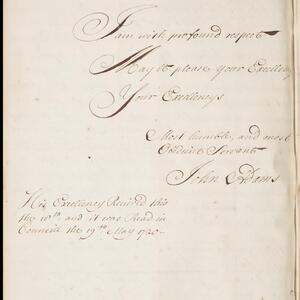 I am with profound respect
May it please your Excellency
Your Excellencys
Most humble, and most
Obedient Servant
John Adams
His Excellency Received this
the 18th and it was Read in
Council the 19th May